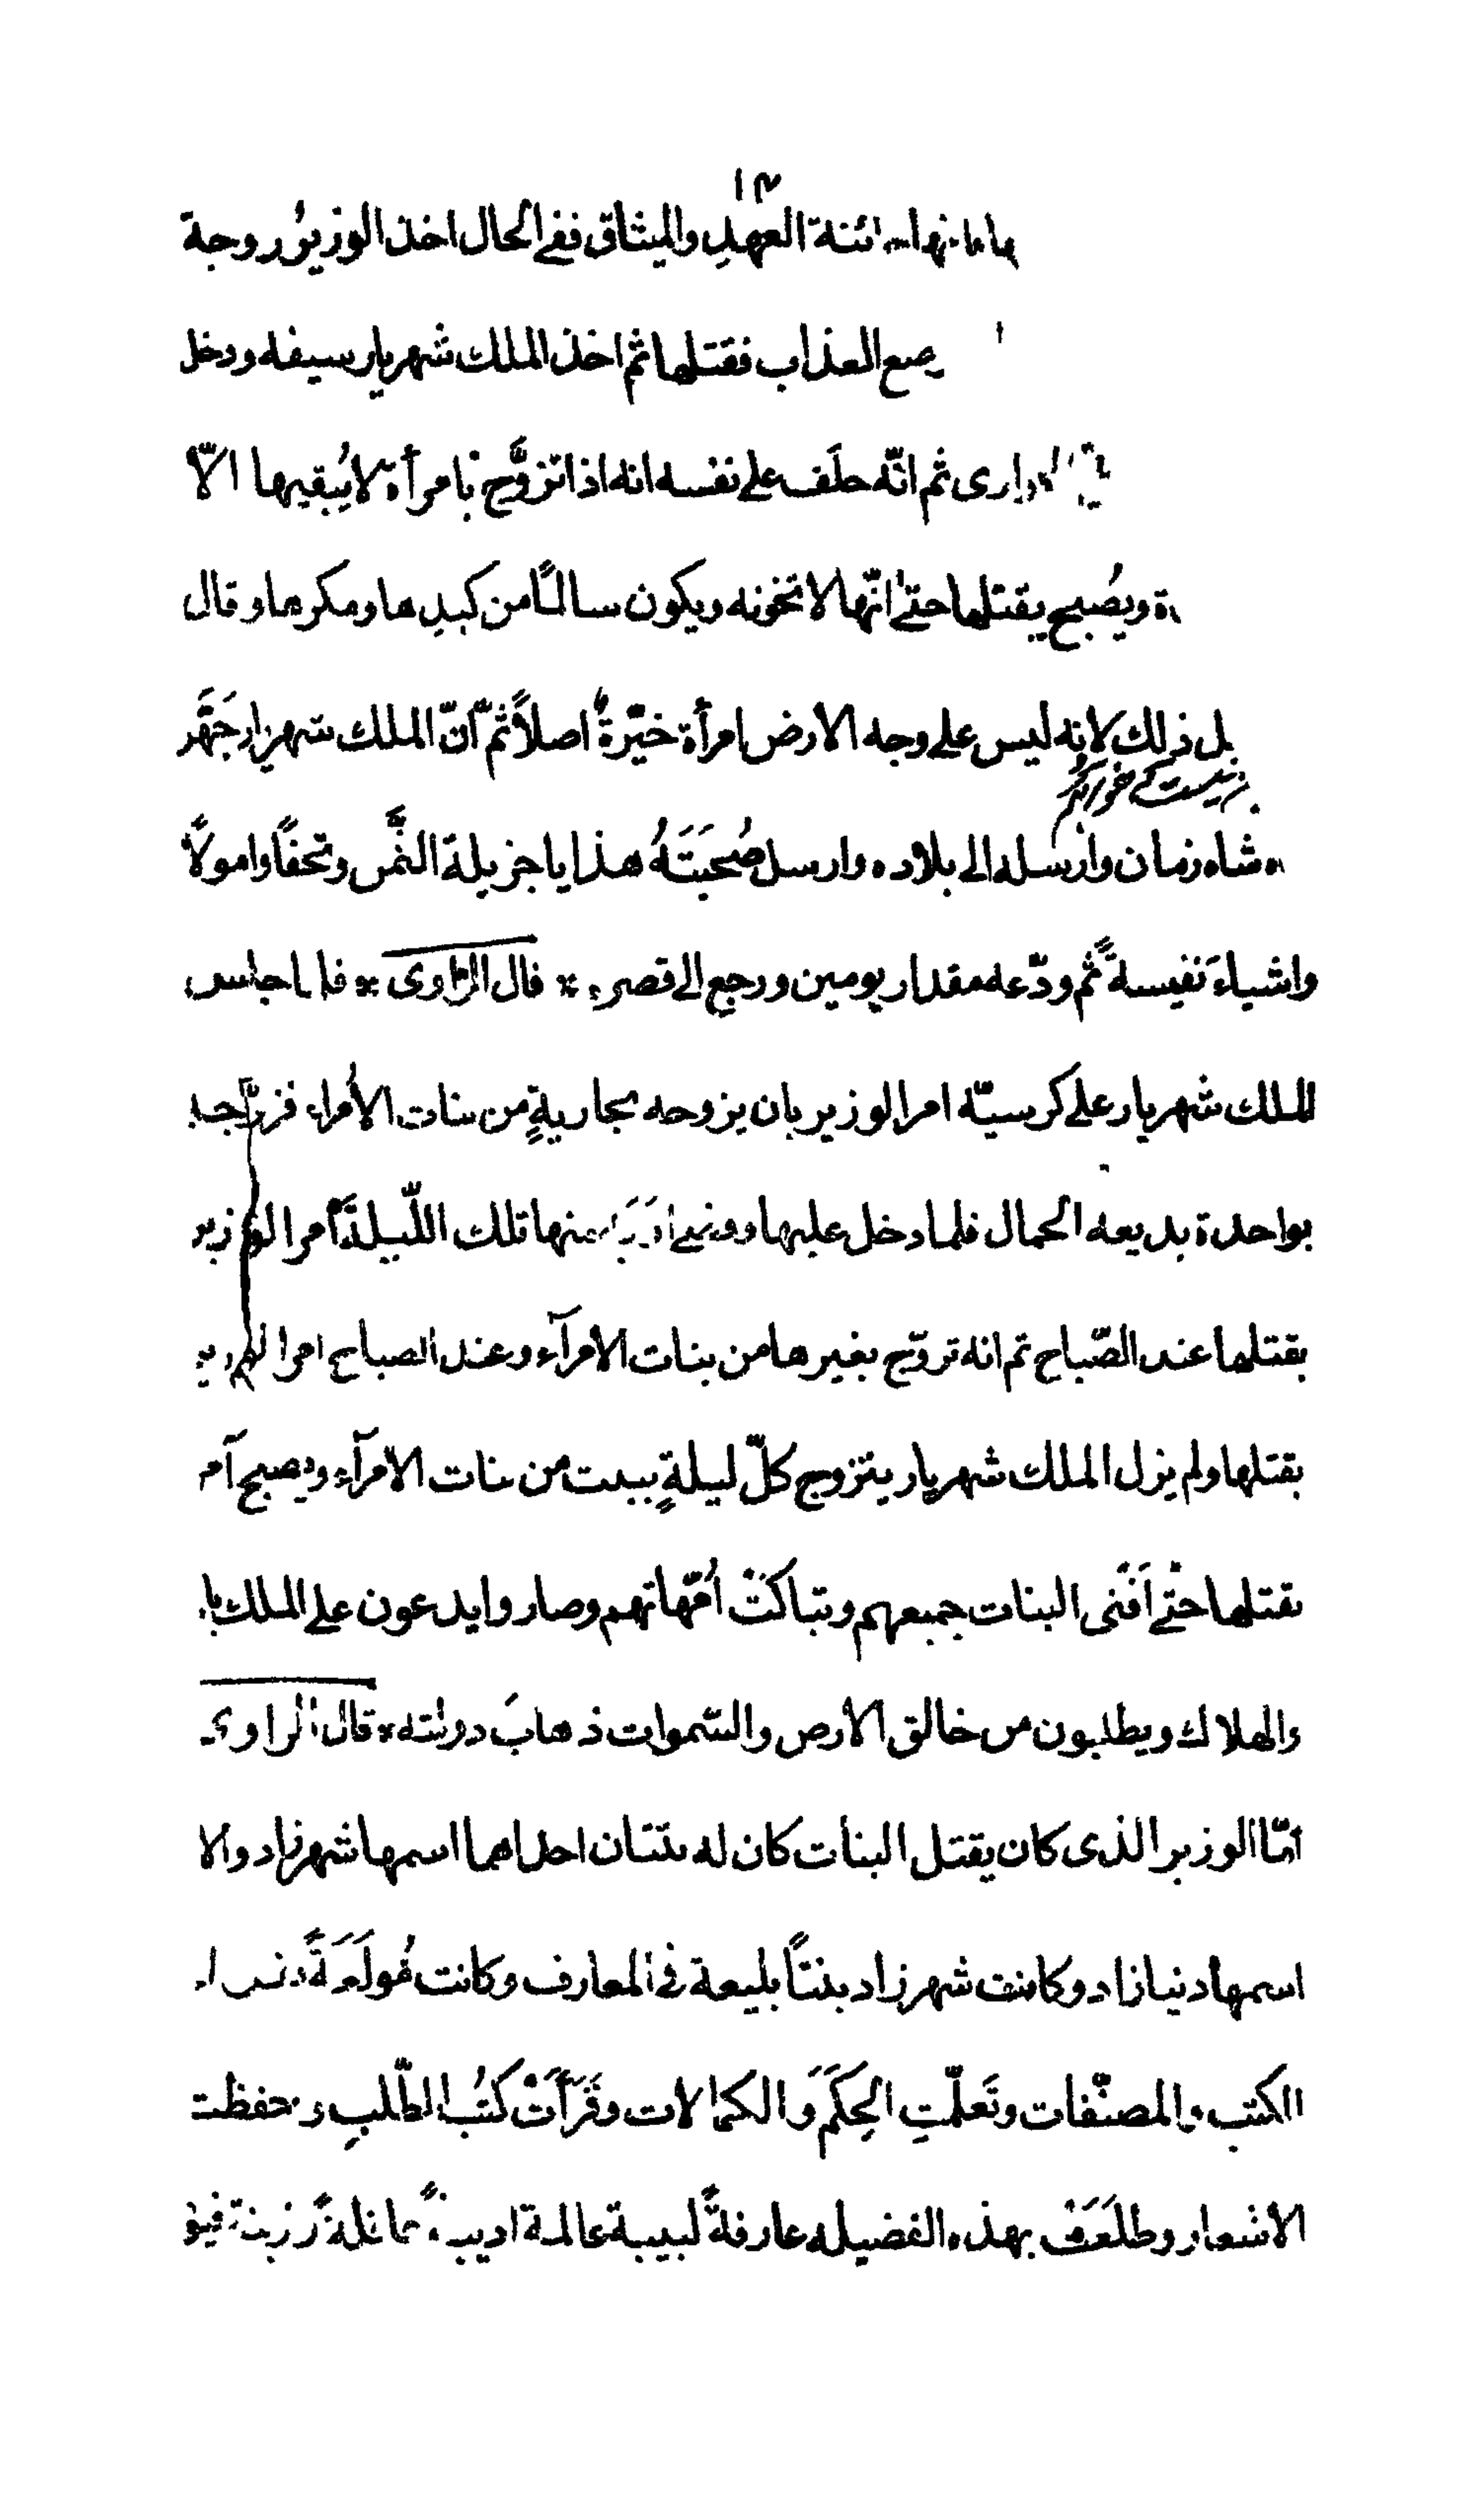 ١٣
العهدِ والميثاق ففى الحال اخذ الوزير زوجة
العذاب فقتلها ثم اخذ الملك شهريار سيفه ودخل
ثم انّه حلَف على نفسه انه اذا تزوَّج بامرأةٍ لا يُبقيها الّا
ويصُبح يقتلها حتى انّها لا تخونه ويكون سالمًا من كيدِها ومكرها وقال
ذلك لانه ليس على وجه الارض امرأة خيّرةٌ اصلاً ثمّ انّ الملك شهريار جَهَّز
شاه زمان وارسله الى بلاده وارسل صُحبَتَهُ هدايا جزيلة الثمَّن وتحفًا واموالًا
واشياءَ نفيسةً ثم ودّعه مقدار يومين ورجع الى قصره * قال الرّاوى * فلما جلس
الملك شهريار على كرسيّه امر الوزير بان يزوجه بجاريةٍ من بنات الأمراء فزوّجه
بواحدة بديعه الجمال فلما دخل عليها منها تلك اللّيلةَ أمر الوزير
بقتلها عند الصّباح ثم انه تزوّج بغيرها من بنات الامرآء وعند الصباح امر الوزير
بقتلها ولم يزل الملك شهريار يتزوج كلّ ليلةٍ ببنت من بنات الامرآء ويصبح
بقتلها حتّى اَفنَى البنات جميعهم وتباكَتْ اُمّهاتهم وصاروا يدعون على الملك
والهلاك ويطلبون من خالق الارض والسّموات ذهابَ دولته * قال الراوى
امّا الوزير الذى كان يقتل البنات كان له بنتان احداهما اسمها شهرزاد والا
اسمها دنيازاد وكانت شهرزاد بنتًا بليعة فى المعارف وكانت مُولَعَةً
الكتب والمصنّفات وتَعلّمتِ الحِكَمَ وَالكمالات وقَرَأَتْ كتُب الطّلبِ وحفظت
الاشعار وطلَعَت بهذه الفضيله عارفةً لبيبة عالمة